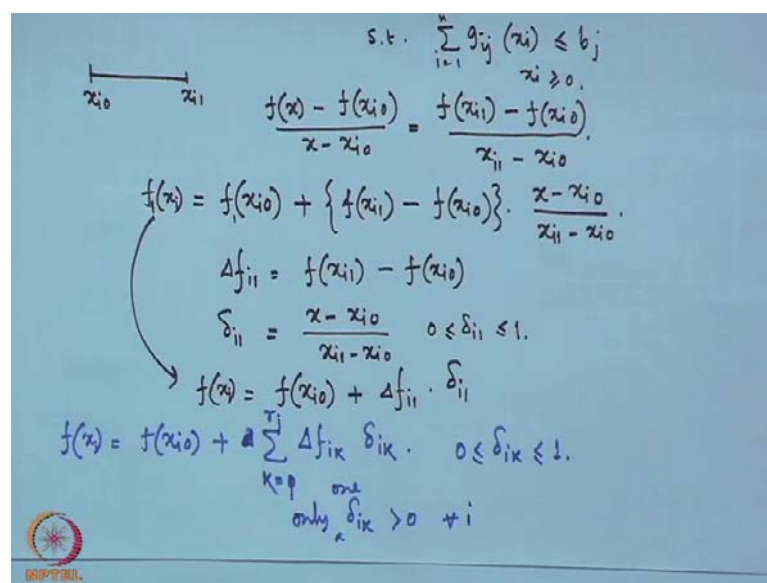 s.t. n∑i=1 gij (xi) ≤ bj
xi ≥ 0.
xi0 xi1
f(x) - f(xi0) / x - xi0 = f(xi1) - f(xi0) / xi1 - xi0.
fi(xi) = fi(xi0) + {f(xi1) - f(xi0)}. x - xi0 / xi1 - xi0.
Δfi1 = f(xi1) - f(xi0)
δi1 = x - xi0 / xi1 - xi0 0 ≤ δi1 ≤ 1.
f(xi) = f(xi0) + Δfi1 . δi1
f(xi) = f(xi0) + rj∑k=1 Δfik δik. 0 ≤ δik ≤ 1.
only one δik > 0 ∀ i
NPTEL